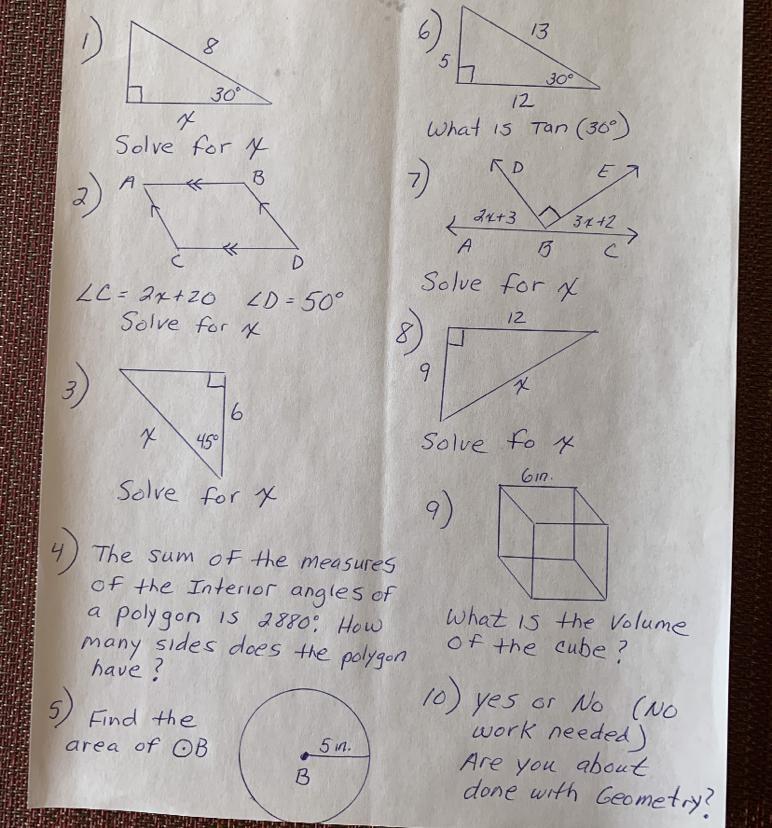 1)
8
30°
x
Solve for x
2)
A
B
C
D
∠C = 2x+20 ∠D = 50°
Solve for x
3)
6
x
45°
Solve for x
4) The sum of the measures
of the Interior angles of
a polygon is 2880°. How
many sides does the polygon
have?
5) Find the
area of ⊙B
5 in.
B
6)
13
5
30°
12
What is Tan (30°)
7)
D
E
2x+3
3x+2
A
B
C
Solve for x
8)
12
9
x
Solve fo x
9)
6in.
What is the Volume
of the cube?
10) yes or No (No
work needed)
Are you about
done with Geometry?